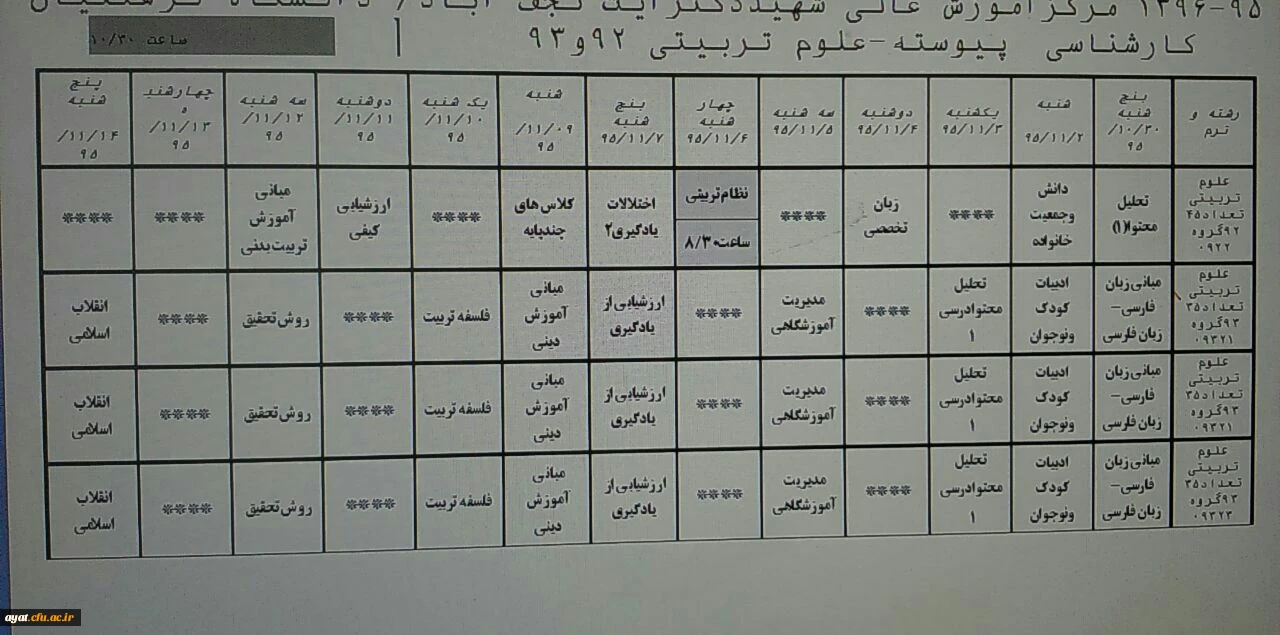 ۱۳۹۶-۹۵ مرکز آموزش عالی شهید آیت نجف آباد / دانشگاه فرهنگیان
کارشناسی پیوسته-علوم تربیتی ۹۲و۹۳
ساعت ۱۰/۳۰
رشته و ترم
پنج شنبه ۱۰/۳۰/ ۹۵
شنبه ۹۵/۱۱/۲
یکشنبه ۹۵/۱۱/۳
دوشنبه ۹۵/۱۱/۴
سه شنبه ۹۵/۱۱/۵
چهار شنبه ۹۵/۱۱/۶
پنج شنبه ۹۵/۱۱/۷
شنبه ۱۱/۰۹/ ۹۵
یک شنبه ۱۱/۱۰/ ۹۵
دوشنبه ۱۱/۱۱/ ۹۵
سه شنبه ۱۱/۱۲/ ۹۵
چهارشنبه ۱۱/۱۳/ ۹۵
پنج شنبه ۱۱/۱۴/ ۹۵
علوم تربیتی تعداد۴۵ ۹۲گروه ۰۹۲۲
تحلیل محتوا(۱)
دانش وجمعیت خانواده
****
زبان تخصصی
****
نظام تربیتی
ساعت۸/۳۰
اختلالات یادگیری۲
کلاس های چندپایه
****
ارزشیابی کیفی
مبانی آموزش تربیت بدنی
****
****
علوم تربیتی تعداد۳۵ ۹۳گروه ۰۹۳۲۱
مبانی زبان فارسی– زبان فارسی
ادبیات کودک ونوجوان
تحلیل محتوادرسی ۱
****
مدیریت آموزشگاهی
****
ارزشیابی از یادگیری
مبانی آموزش دینی
فلسفه تربیت
****
روش تحقیق
****
انقلاب اسلامی
علوم تربیتی تعداد۳۵ ۹۳گروه ۰۹۳۲۱
مبانی زبان فارسی– زبان فارسی
ادبیات کودک ونوجوان
تحلیل محتوادرسی ۱
****
مدیریت آموزشگاهی
****
ارزشیابی از یادگیری
مبانی آموزش دینی
فلسفه تربیت
****
روش تحقیق
****
انقلاب اسلامی
علوم تربیتی تعداد۳۵ ۹۳گروه ۰۹۳۲۳
مبانی زبان فارسی– زبان فارسی
ادبیات کودک ونوجوان
تحلیل محتوادرسی ۱
****
مدیریت آموزشگاهی
****
ارزشیابی از یادگیری
مبانی آموزش دینی
فلسفه تربیت
****
روش تحقیق
****
انقلاب اسلامی
ayat.cfu.ac.ir